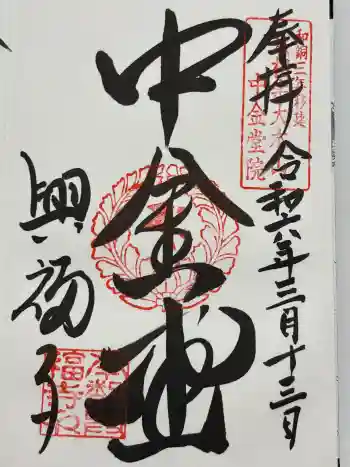 奉拝 令和六年三月十三日
中金堂
興福寺
和銅三年移建
中金堂院